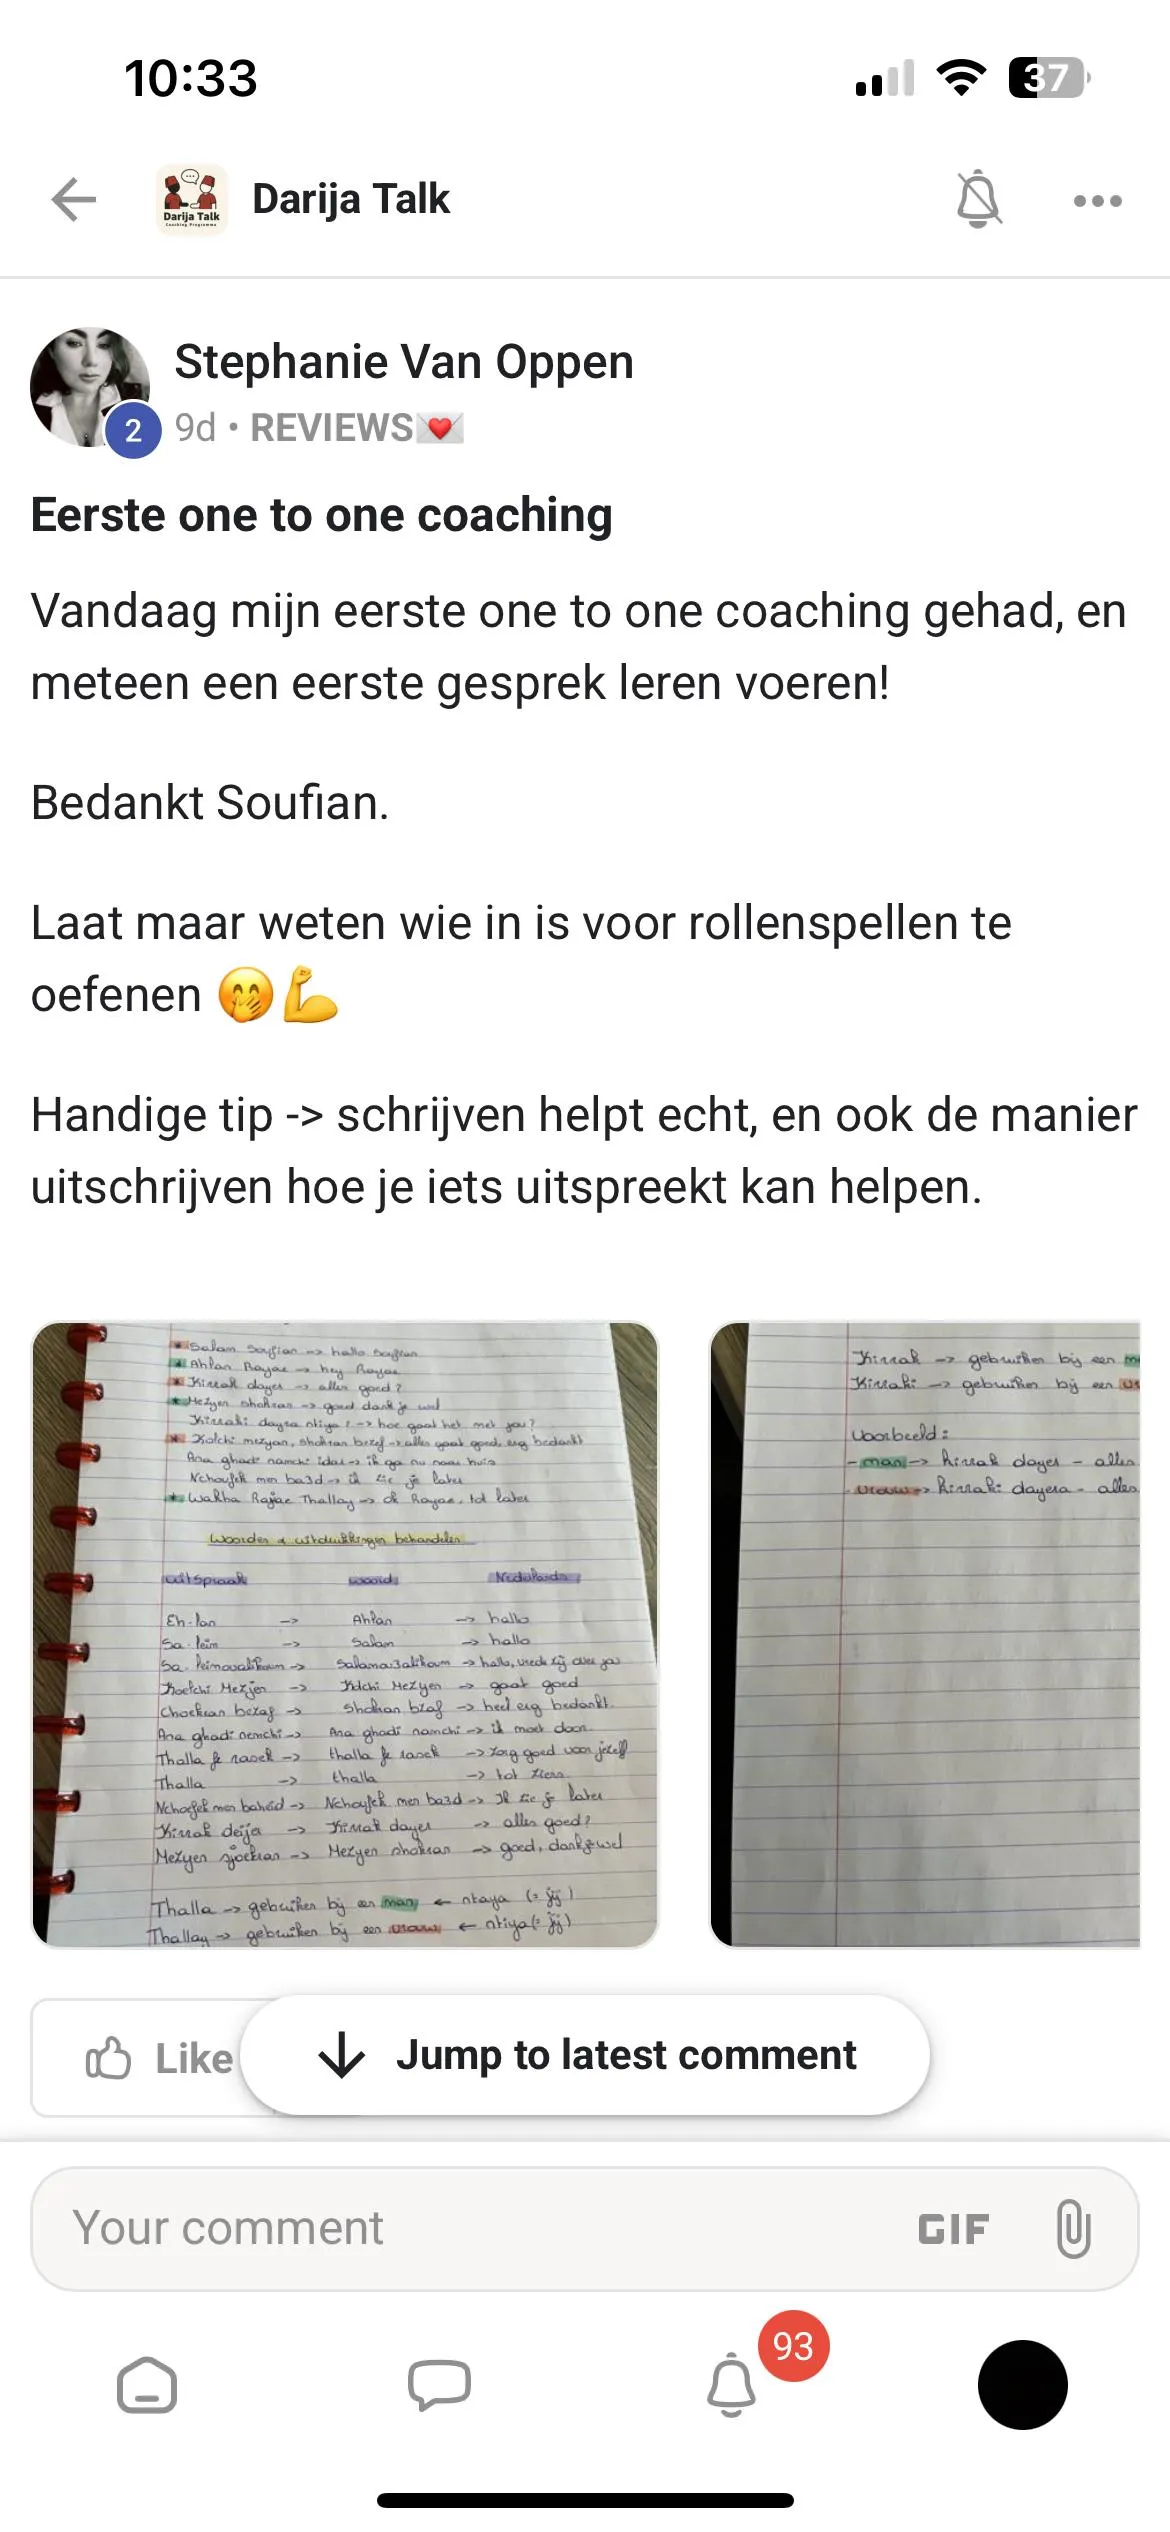 10:33
37
Darija Talk
Darija Talk
Stephanie Van Oppen
2
9d • REVIEWS💌
Eerste one to one coaching
Vandaag mijn eerste one to one coaching gehad, en
meteen een eerste gesprek leren voeren!
Bedankt Soufian.
Laat maar weten wie in is voor rollenspellen te
oefenen 🤭💪
Handige tip -> schrijven helpt echt, en ook de manier
uitschrijven hoe je iets uitspreekt kan helpen.
* Salam Soufian -> hallo Soufian
* Ahlan Rajae -> hey Rajae
* Kirrak dayer -> alles goed ?
* Mezyen shokran -> goed dank je wel
Kirraki dayra ntiya ? -> hoe gaat het met jou ?
* Kolchi mezyan, shokran bezef -> alles gaat goed, erg bedankt
Ana ghadi namchi -> ik ga nu naar huis
Nchoufek men ba3d -> ik zie je later
* Wakha Rajae Thallay -> ok Rajae, tot later
Woorden & uitdrukkingen behandelen
uitspraak woord Nederlands
Eh-lan -> Ahlan -> hallo
Sa-leim -> Salam -> hallo
-> -> hallo, vrede zij over jou
Koelchi Mezjen -> Kolchi Mezyen -> gaat goed
Choekran bezaf -> Shokran bzaf -> heel erg bedankt
Ana ghadi nemchi -> Ana ghadi namchi -> ik moet door
Thalla fe rasek -> thalla fe rasek -> zorg goed voor jezelf
Thalla -> thalla -> tot ziens
Nchoefek men baheid -> Nchoufek men ba3d -> Ik zie je later
Kirrak deijer -> Kirrak dayer -> alles goed?
Mezyen sjoekran -> Mezyen shokran -> goed, dankjewel
Thalla -> gebruiken bij een man <- ntaya (= jij)
Thallay -> gebruiken bij een vrouw <- ntiya (= jij)
Kirrak -> gebruiken bij een
Kirraki -> gebruiken bij een
Voorbeeld :
- man -> kirrak dayer - alles
- vrouw -> kirraki dayera - alles
Like
Jump to latest comment
Your comment
GIF
93